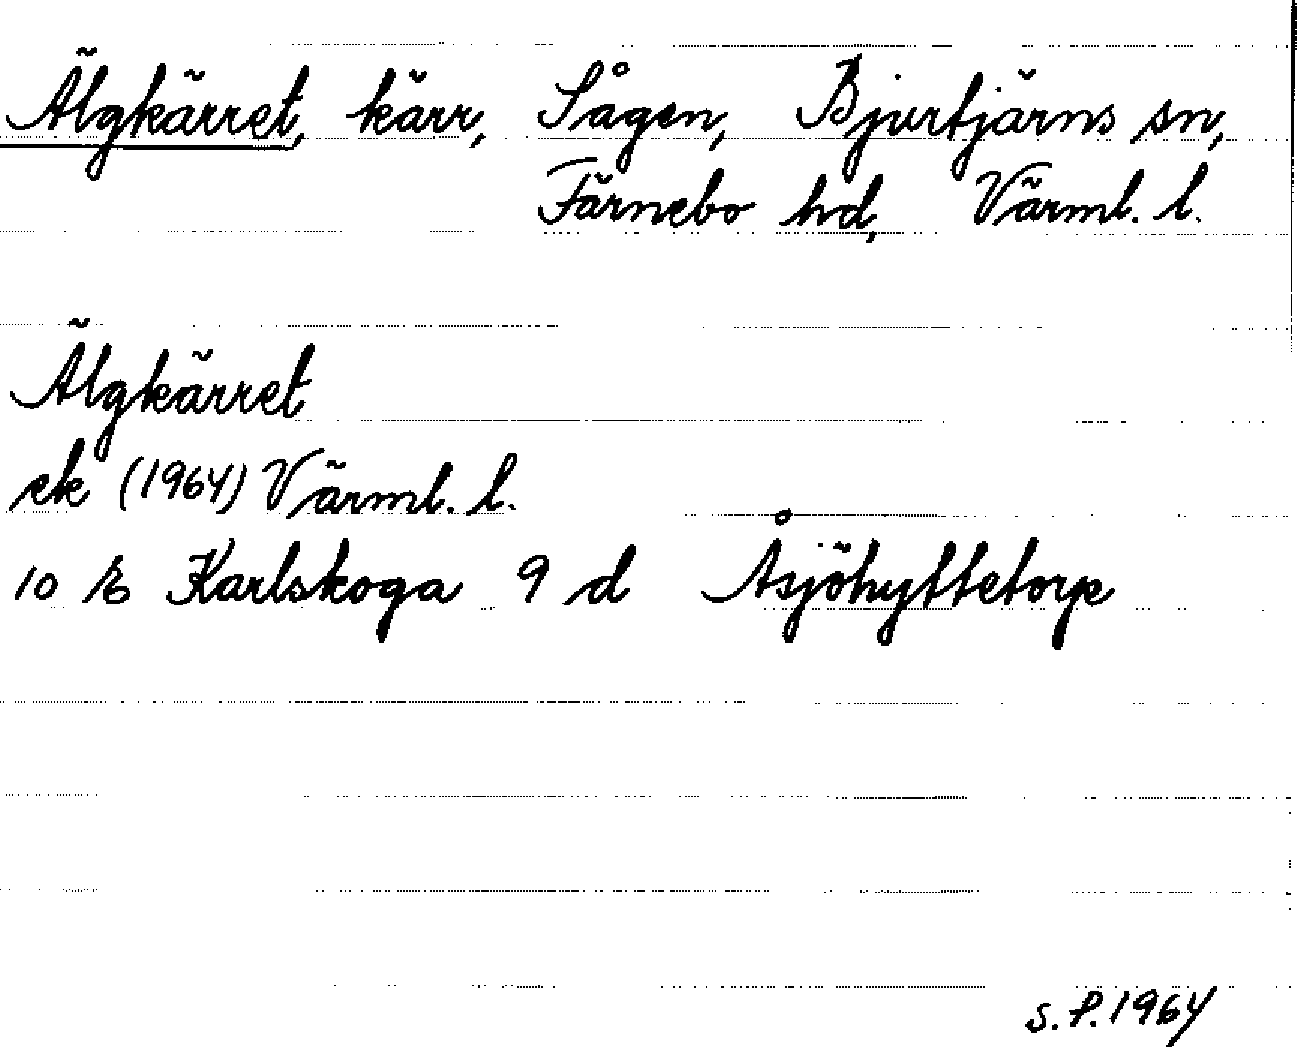 Älgkärret, kärr, Sågen, Bjurtjärns sn,
Färnebo hd, Värml. l.
Älgkärret
ek (1964) Värml. l.
10 E Karlskoga 9 d Åsjöhyttetorp
S.P. 1964